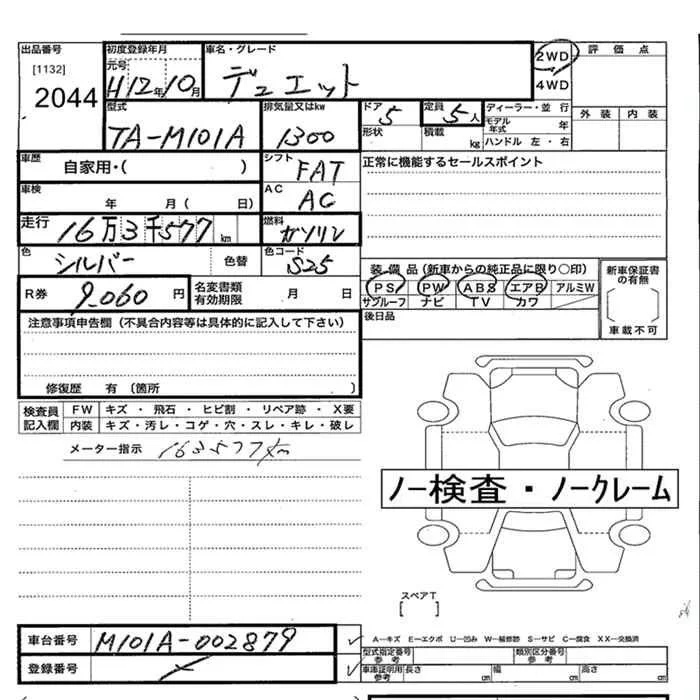 出品番号 初度登録年月 車名・グレード 2WD 評価点
[1132] 元号 4WD
2044 H12年10月 デュエット
型式 排気量又はkw ドア 定員 ディーラー・並行 外装 内装
TA-M101A 1300 5 5人 モデル年式 年
形状 積載 kg ハンドル 左・右
車歴 自家用・( ) シフト FAT 正常に機能するセールスポイント
車検 年 月( 日) AC AC
走行 16万3千577km 燃料 ガソリン
色 シルバー 色替 色コード S25 装備品(新車からの純正品に限り○印) 新車保証書の有無
R券 9.060円 名変書類有効期限 月 日 PS PW ABS エアB アルミW
サンルーフ ナビ TV カワ 車載不可
注意事項申告欄(不具合内容等は具体的に記入して下さい) 後日品
修復歴 有 〔箇所 〕
検査員記入欄 FW キズ・飛石・ヒビ割・リペア跡・X要
内装 キズ・汚レ・コゲ・穴・スレ・キレ・破レ
メーター指示 163577km
ノー検査・ノークレーム
スペアT
[ ]
車台番号 M101A-002879 A−キズ E−エクボ U−凹み W−補修跡 S−サビ C−腐食 XX−交換済
型式指定番号参考 類別区分番号参考
登録番号 車庫証明用参考 長さ cm 幅 cm 高さ cm